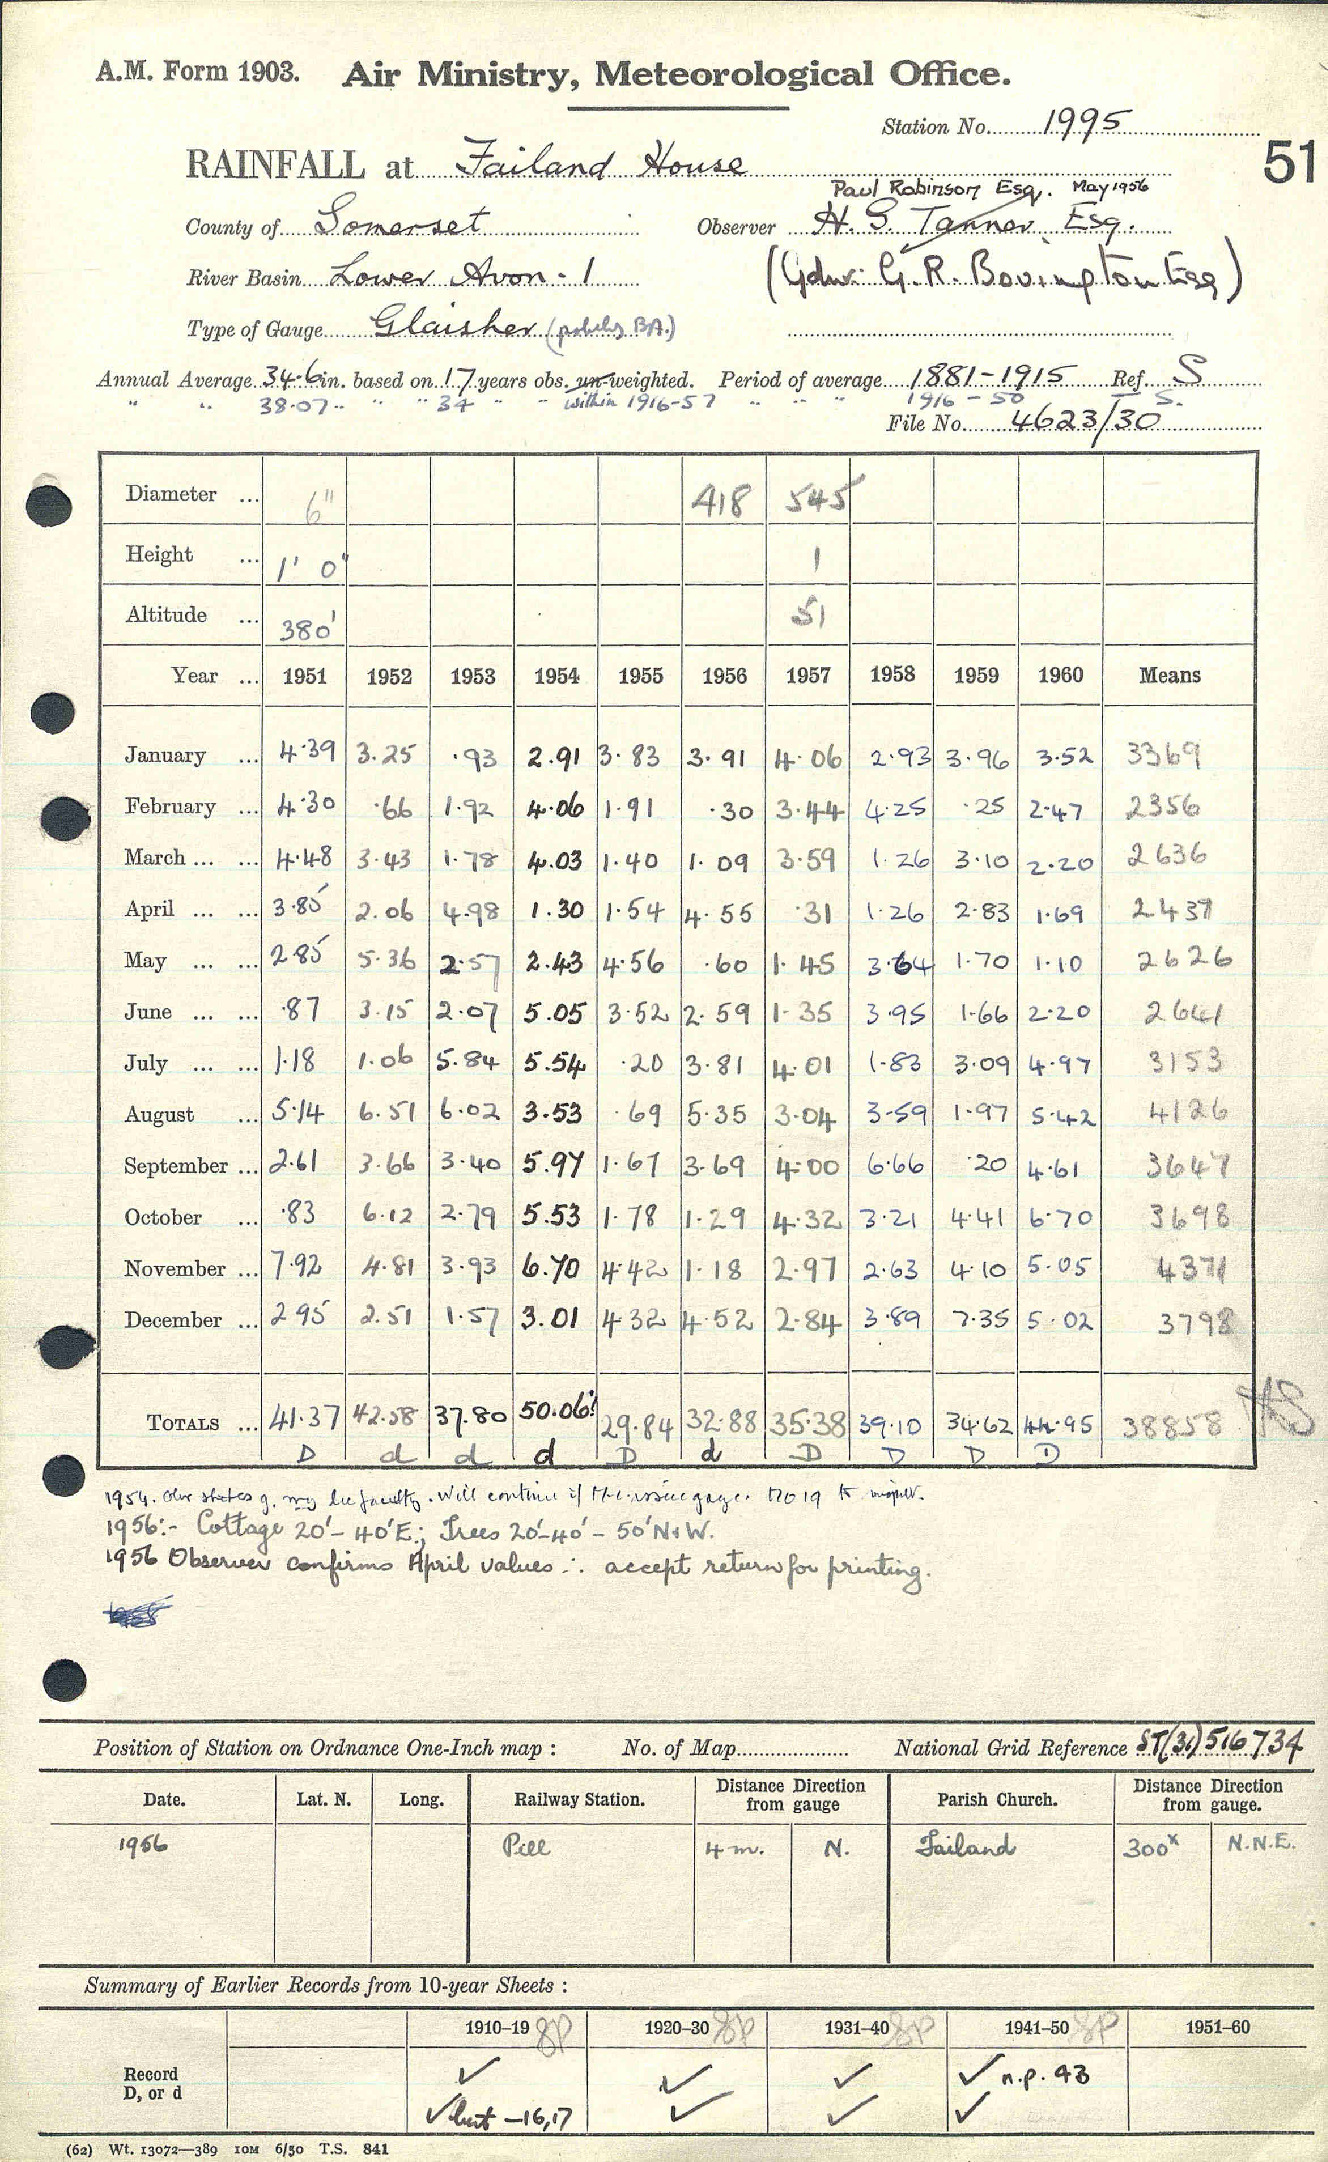 A.M. Form 1903. Air Ministry, Meteorological Office.
Station No. 1995
51
RAINFALL at Failand House
Paul Robinson Esq. May 1956
County of Somerset Observer H. G. Tanner, Esq.
River Basin Lower Avon - 1 (Gdnr: G. R. Bovington Esq)
Type of Gauge Glaisher (probably BA.)
Annual Average 34.6 in. based on 17 years obs. un-weighted. Period of average 1881-1915 Ref. S
" " 38.07 " " " 34 " " within 1916-57 " " " 1916-50 " S.
File No. 4623/30
Diameter ... 6" 418 545
Height ... 1' 0" 1
Altitude ... 380' 51
Year ... 1951 1952 1953 1954 1955 1956 1957 1958 1959 1960 Means
January ... 4.39 3.25 .93 2.91 3.83 3.91 4.06 2.93 3.96 3.52 3369
February ... 4.30 .66 1.92 4.06 1.91 .30 3.44 4.25 .25 2.47 2356
March ... ... 4.48 3.43 1.78 4.03 1.40 1.09 3.59 1.26 3.10 2.20 2636
April ... ... 3.85 2.06 4.98 1.30 1.54 4.55 .31 1.26 2.83 1.69 2437
May ... ... 2.85 5.36 2.57 2.43 4.56 .60 1.45 3.64 1.70 1.10 2626
June ... ... .87 3.15 2.07 5.05 3.52 2.59 1.35 3.95 1.66 2.20 2641
July ... ... 1.18 1.06 5.84 5.54 .20 3.81 4.01 1.83 3.09 4.97 3153
August ... 5.14 6.51 6.02 3.53 .69 5.35 3.04 3.59 1.97 5.42 4126
September ... 2.61 3.66 3.40 5.97 1.67 3.69 4.00 6.66 .20 4.61 3647
October ... .83 6.12 2.79 5.53 1.78 1.29 4.32 3.21 4.41 6.70 3698
November ... 7.92 4.81 3.93 6.70 4.42 1.18 2.97 2.63 4.10 5.05 4371
December ... 2.95 2.51 1.57 3.01 4.32 4.52 2.84 3.89 7.35 5.02 3798
TOTALS ... 41.37 42.58 37.80 50.06! 29.84 32.88 35.38 39.10 34.62 44.95 38858
D d d d D d D D D D
1954. Obsr states g. my be faulty. Will continue if
1956:- Cottage 20'- 40'E; Trees 20'-40' - 50'N+W.
1956 Observer confirms April values ∴ accept return for printing.
Position of Station on Ordnance One-Inch map : No. of Map National Grid Reference ST(31) 516734
Date. Lat. N. Long. Railway Station. Distance from gauge Direction Parish Church. Distance from gauge. Direction
1956 Pill 4 m. N. Failand 300x N.N.E.
Summary of Earlier Records from 10-year Sheets :
1910–19 SP 1920–30 SP 1931–40 SP 1941–50 SP 1951–60
Record ✓ ✓ ✓ ✓ n.p. 43
D, or d ✓ but -16,17 ✓ ✓ ✓
(62) Wt. 13072—389 10M 6/50 T.S. 841